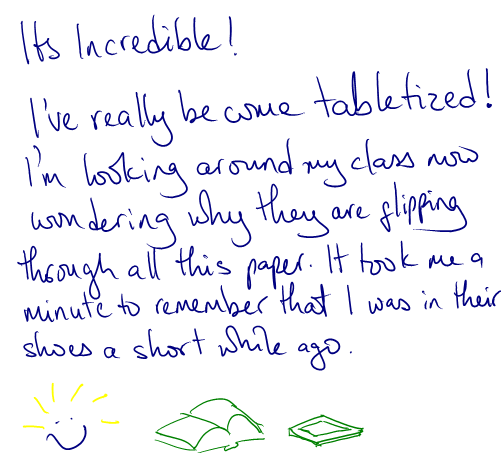 Its Incredible!
I've really become tabletized!
I'm looking around my class now
wondering why they are flipping
through all this paper. It took me a
minute to remember that I was in their
shoes a short while ago.